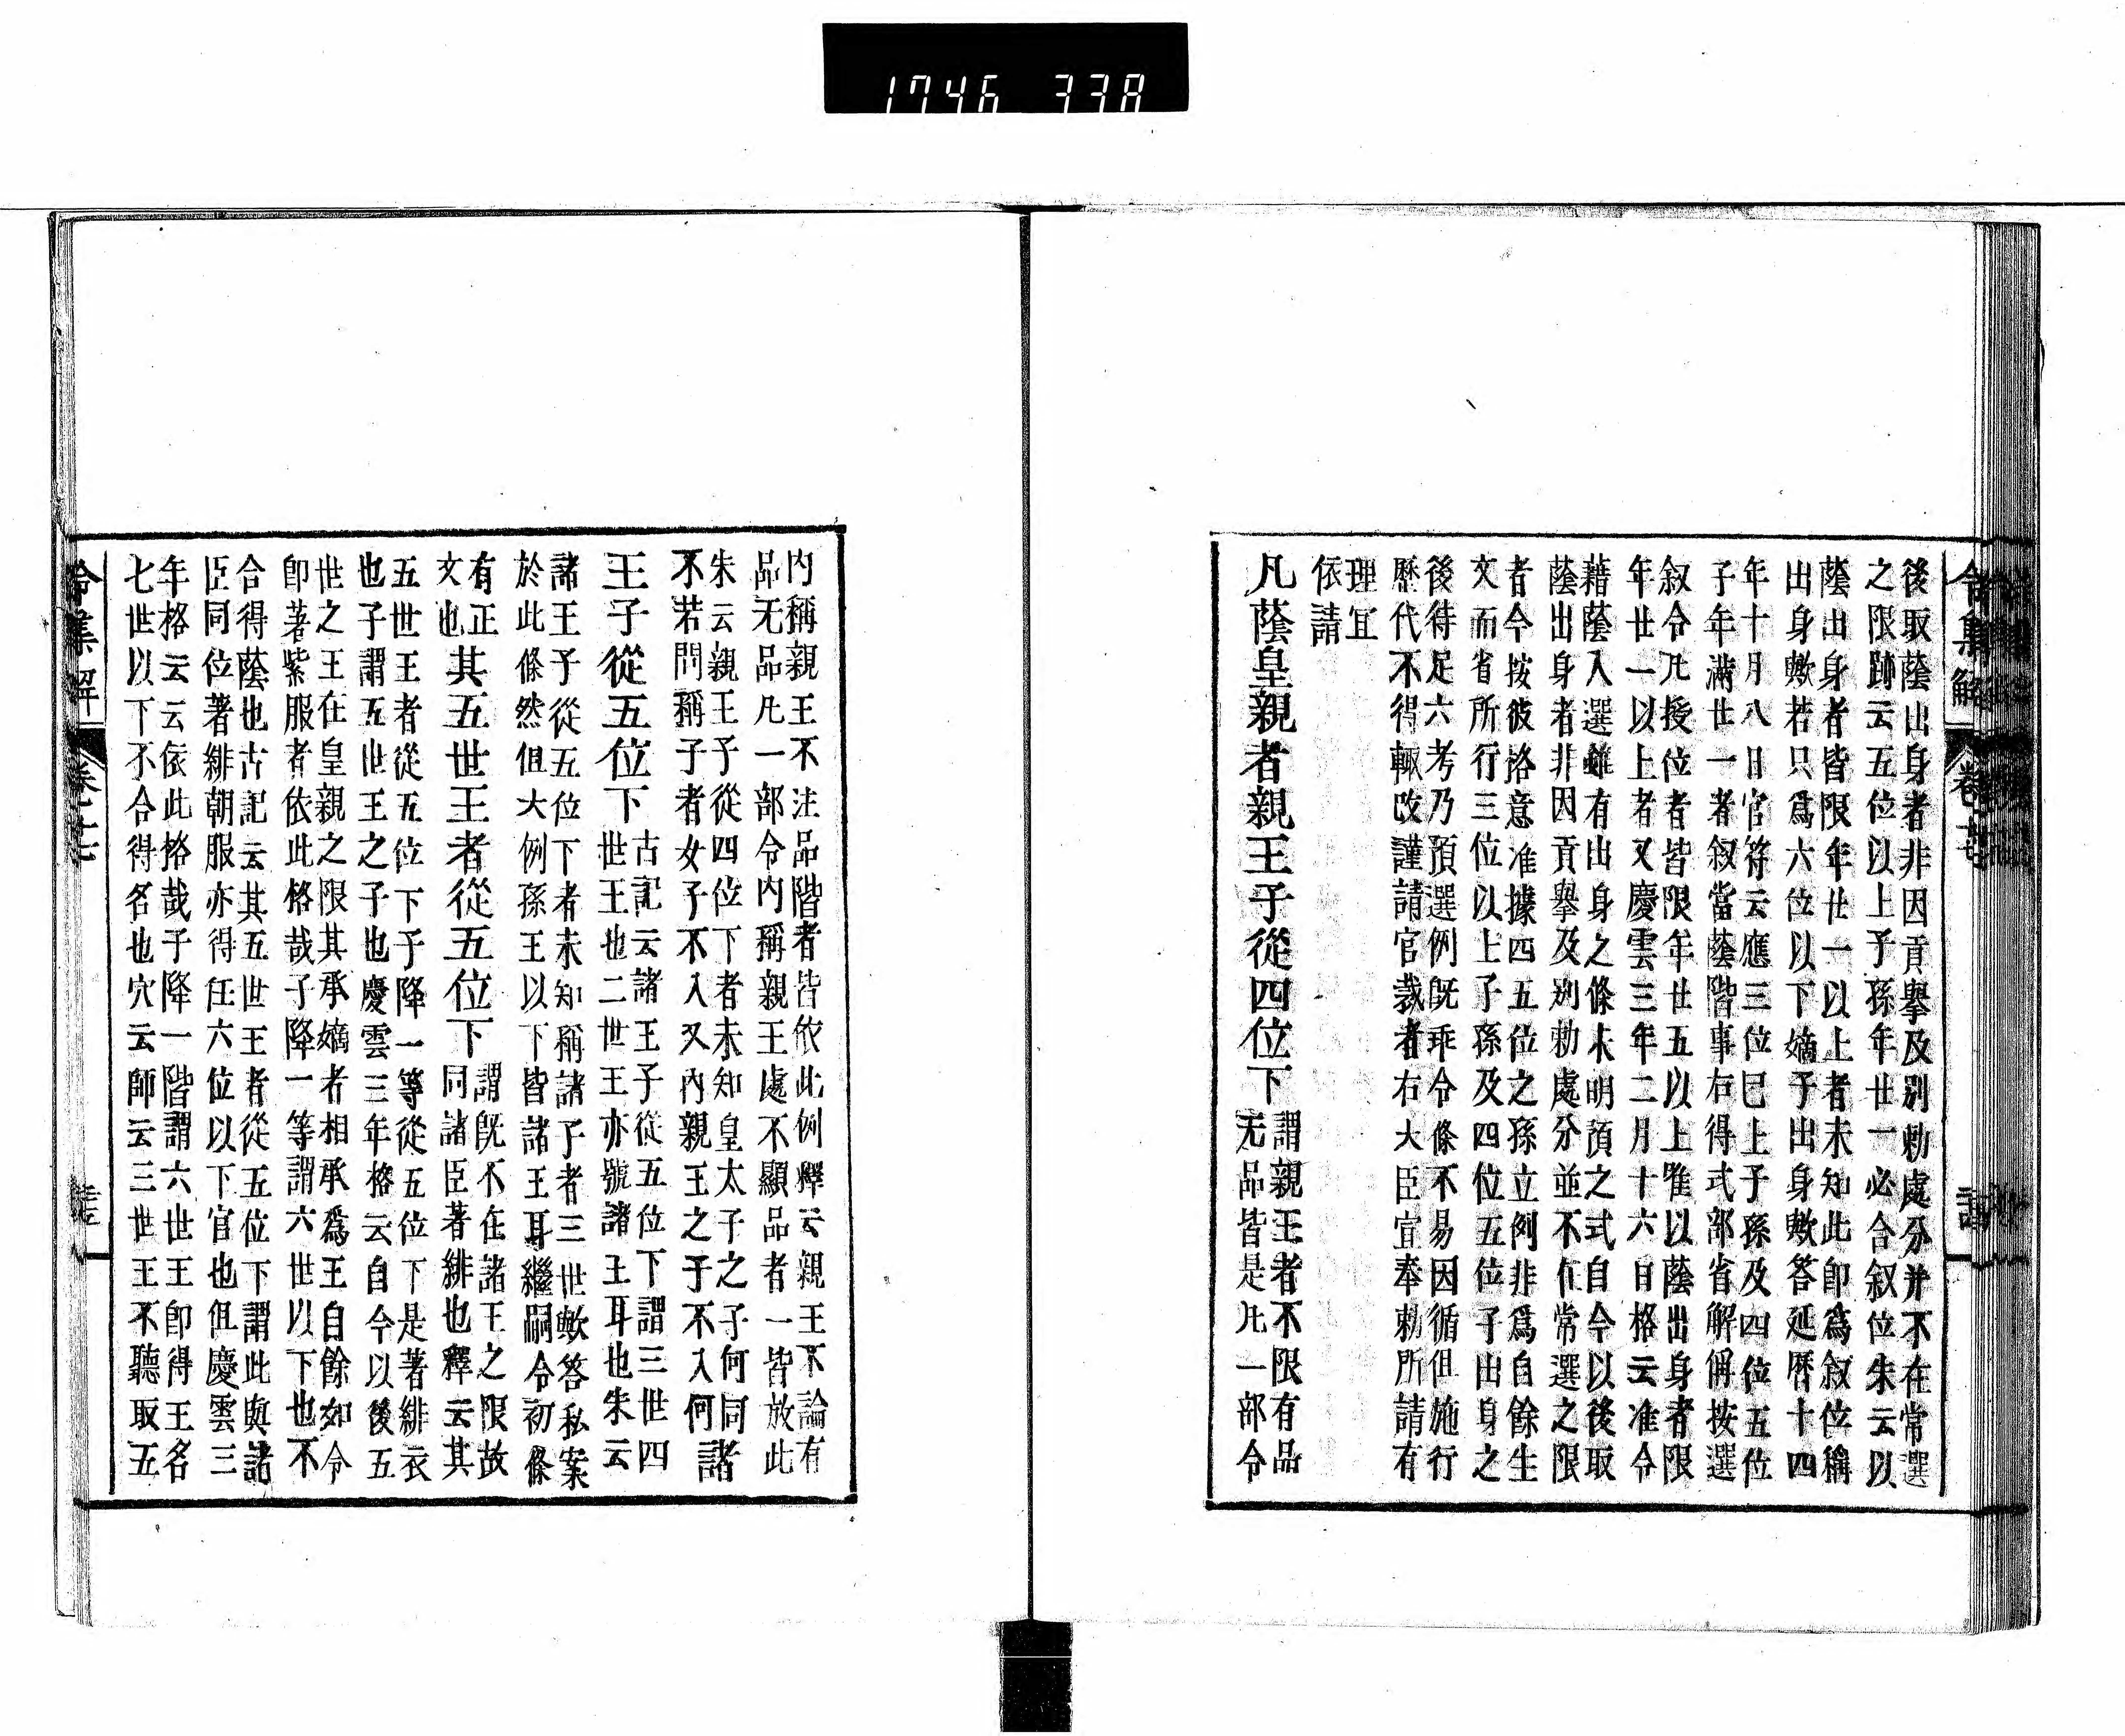 1746 338
令集解 卷十七
後取蔭出身者非因貢擧及別勅處分并不在常選
之限跡云五位以上子孫年廿一必合叙位朱云以
蔭出身者皆限年廿一以上者未知此卽爲叙位稱
出身歟若只爲六位以下嫡子出身歟答延曆十四
年十月八日官符云應三位已上子孫及四位五位
子年滿廿一者叙當蔭階事右得式部省解偁按選
叙令凡授位者皆限年廿五以上唯以蔭出身者限
年廿一以上者又慶雲三年二月十六日格云准令
藉蔭入選雖有出身之條未明預之式自今以後取
蔭出身者非因貢擧及別勅處分並不在常選之限
者今按彼格意准據四五位之孫立例非爲自餘生
文而省所行三位以上子孫及四位五位子出身之
後待足六考乃預選例旣乖令條不易因循但施行
歷代不得輙改謹請官裁者右大臣宣奉勅所請有
理宜
依請
凡蔭皇親者親王子從四位下
謂親王者不限有品
无品皆是凡一部令
內稱親王不注品階者皆依此例釋云親王不論有
品无品凡一部令內稱親王處不顯品者一皆放此
朱云親王子從四位下者未知皇太子之子何同
不若問稱子者女子不入又內親王之子不入何
諸
王子從五位下
古記云諸王子從五位下謂三世四
世王也二世王亦號諸王耳也朱云
諸王子從五位下者未知稱諸子者三世歟答私案
於此條然但大例孫王以下皆諸王耳繼嗣令初條
有正
文也
其五世王者從五位下
謂旣不在諸王之限故
同諸臣著緋也釋云其
五世王者從五位下子降一等從五位下是著緋衣
也子謂五世王之子也慶雲三年格云自今以後五
世之王在皇親之限其承嫡者相承爲王自餘如令
卽著紫服者依此格哉子降一等謂六世以下也不
合得蔭也古記云其五世王者從五位下謂此與諸
臣同位著緋朝服亦得任六位以下官也但慶雲三
年格云云依此格哉子降一階謂六世王卽得王名
七世以下不合得名也穴云師云三世王不聽取五
令集解 卷十七